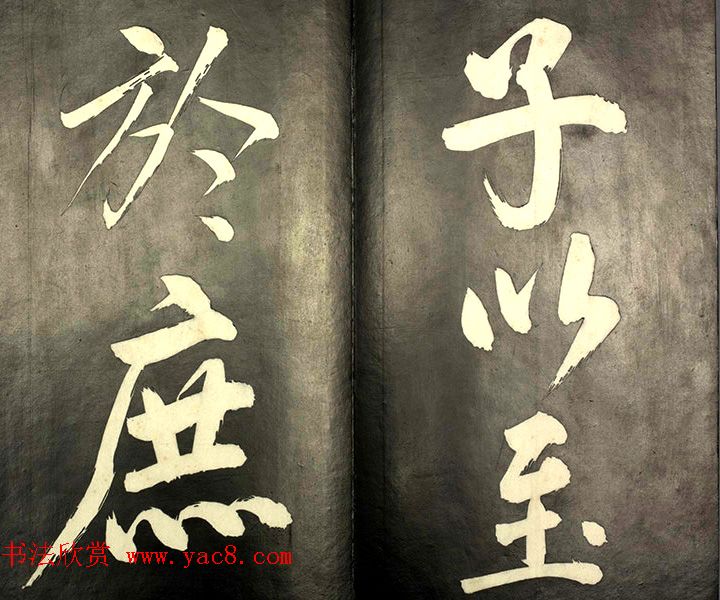 子以至
於庶
书法欣赏 www.yac8.com